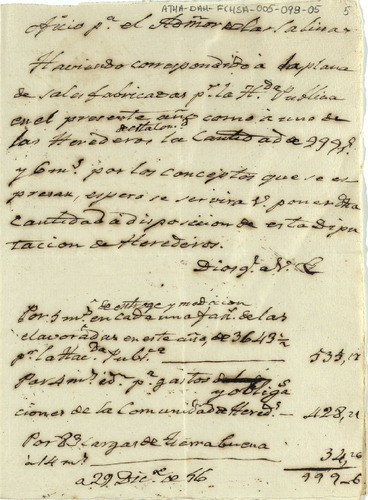 ATHA-DAH-FCHSA-005-098-05
5
Oficio pª el Admōr de las Salinas
Haviendo correspondido à la plana
de sales fabricadas pr. la Hda. Publica
en el presente año como a uno de
las Herederos la Cantidad de 999 rs.
y 6 ms. por los conceptos que se es-
presan, espero se servira V. poner dha
Cantidad a disposicion de esta Dipu
tacion de Herederos.
Dios gue. a V.
de entroge y medicion
Por 5 ms. en cada una fan.s de las
elavoradas en este año, de 36432
pr. la Hacda. Publica 535,17
Por 4 ms. id. pª gastos
y obliga
ciones de la Comunidad de Hereds. 428,21
Por 83 Cargas de Tierra buena
à 14 ms. 34,26
999 - 6
a 29 Dice. de 36